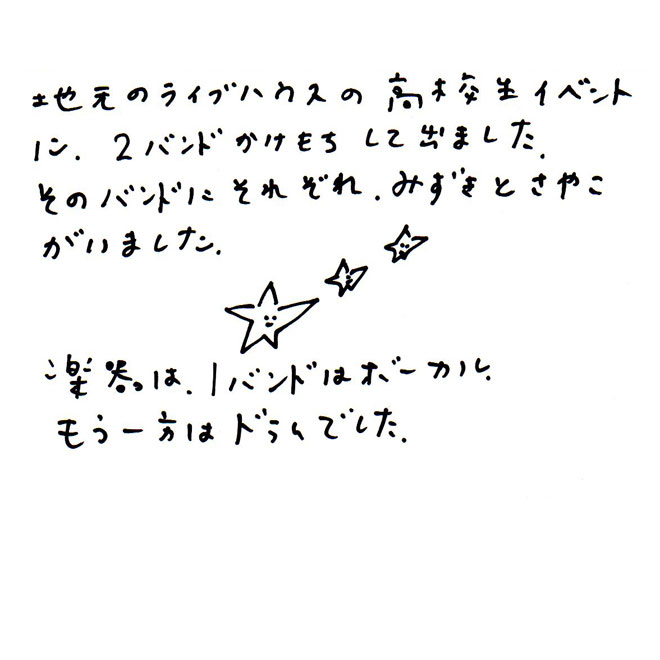 地元のライブハウスの高校生イベント
に、2バンドかけもちして出ました。
そのバンドにそれぞれ、みずきとさやこ
がいました。
楽器は、1バンドはボーカル、
もう一方はドラムでした。